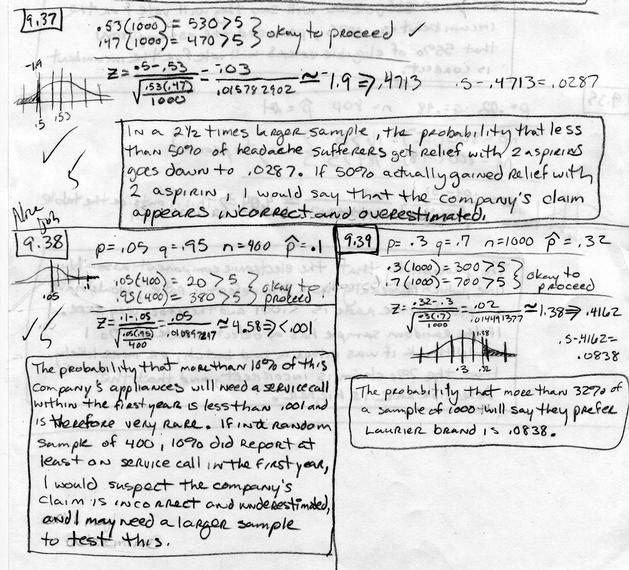 9.37
.53(1000) = 530 > 5 } okay to proceed ✓
.47(1000) = 470 > 5
z = .5-.53 / √(.53(.47)/1000) = -.03 / .015782902 ≈ -1.9 ⇒ .4713 .5-.4713 = .0287
-1.9
.5 .53
In a 2½ times larger sample, the probability that less
than 50% of headache sufferers get relief with 2 aspirins
goes down to .0287. If 50% actually gained relief with
2 aspirin, I would say that the company's claim
appears incorrect and overestimated.
5
Nice
Job
9.38 p = .05 q = .95 n = 400 p̂ = .1
.05(400) = 20 > 5 } okay to
.95(400) = 380 > 5 proceed
.05 .1
z = .1-.05 / √(.05(.95)/400) = .05 / .010897247 ≈ 4.58 ⇒ < .001
5
The probability that more than 10% of this
company's appliances will need a service call
within the first year is less than .001 and
is therefore very rare. If in a random
sample of 400, 10% did report at
least on service call in the first year,
I would suspect the company's
claim is incorrect and underestimated,
and I may need a larger sample
to test this.
9.39 p = .3 q = .7 n = 1000 p̂ = .32
.3(1000) = 300 > 5 } okay to
.7(1000) = 700 > 5 proceed
z = .32-.3 / √(.3(.7)/1000) = .02 / .014491377 ≈ 1.38 ⇒ .4162
.5-.4162=
.0838
1.38
.3 .32
The probability that more than 32% of
a sample of 1000 will say they prefer
Laurier brand is .0838.